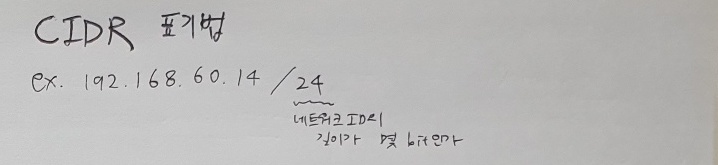 CIDR 표기법
ex. 192.168.60.14 / 24
네트워크 ID의
길이가 몇 bit인가